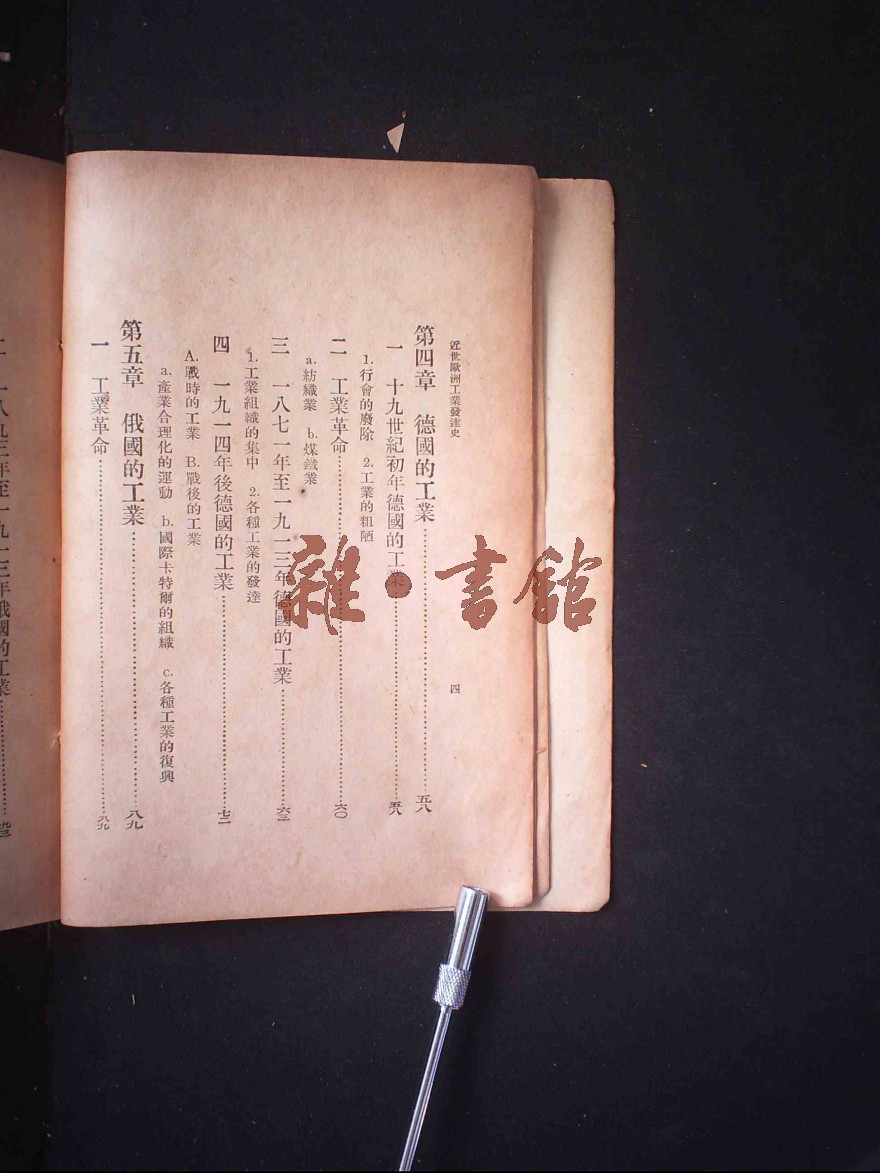 近世歐洲工業發達史 四
第四章 德國的工業 五八
一 十九世紀初年德國的工業 五八
1.行會的廢除 2.工業的粗陋
二 工業革命 六〇
a.紡織業 b.煤鐵業
三 一八七一年至一九一三年德國的工業 六三
1.工業組織的集中 2.各種工業的發達
四 一九一四年後德國的工業 七二
A.戰時的工業 B.戰後的工業
a.產業合理化的運動 b.國際卡特爾的組織 c.各種工業的復興
第五章 俄國的工業 八九
一 工業革命 八九
二 一八九三年至一九一三年俄國的工業
雜·書館